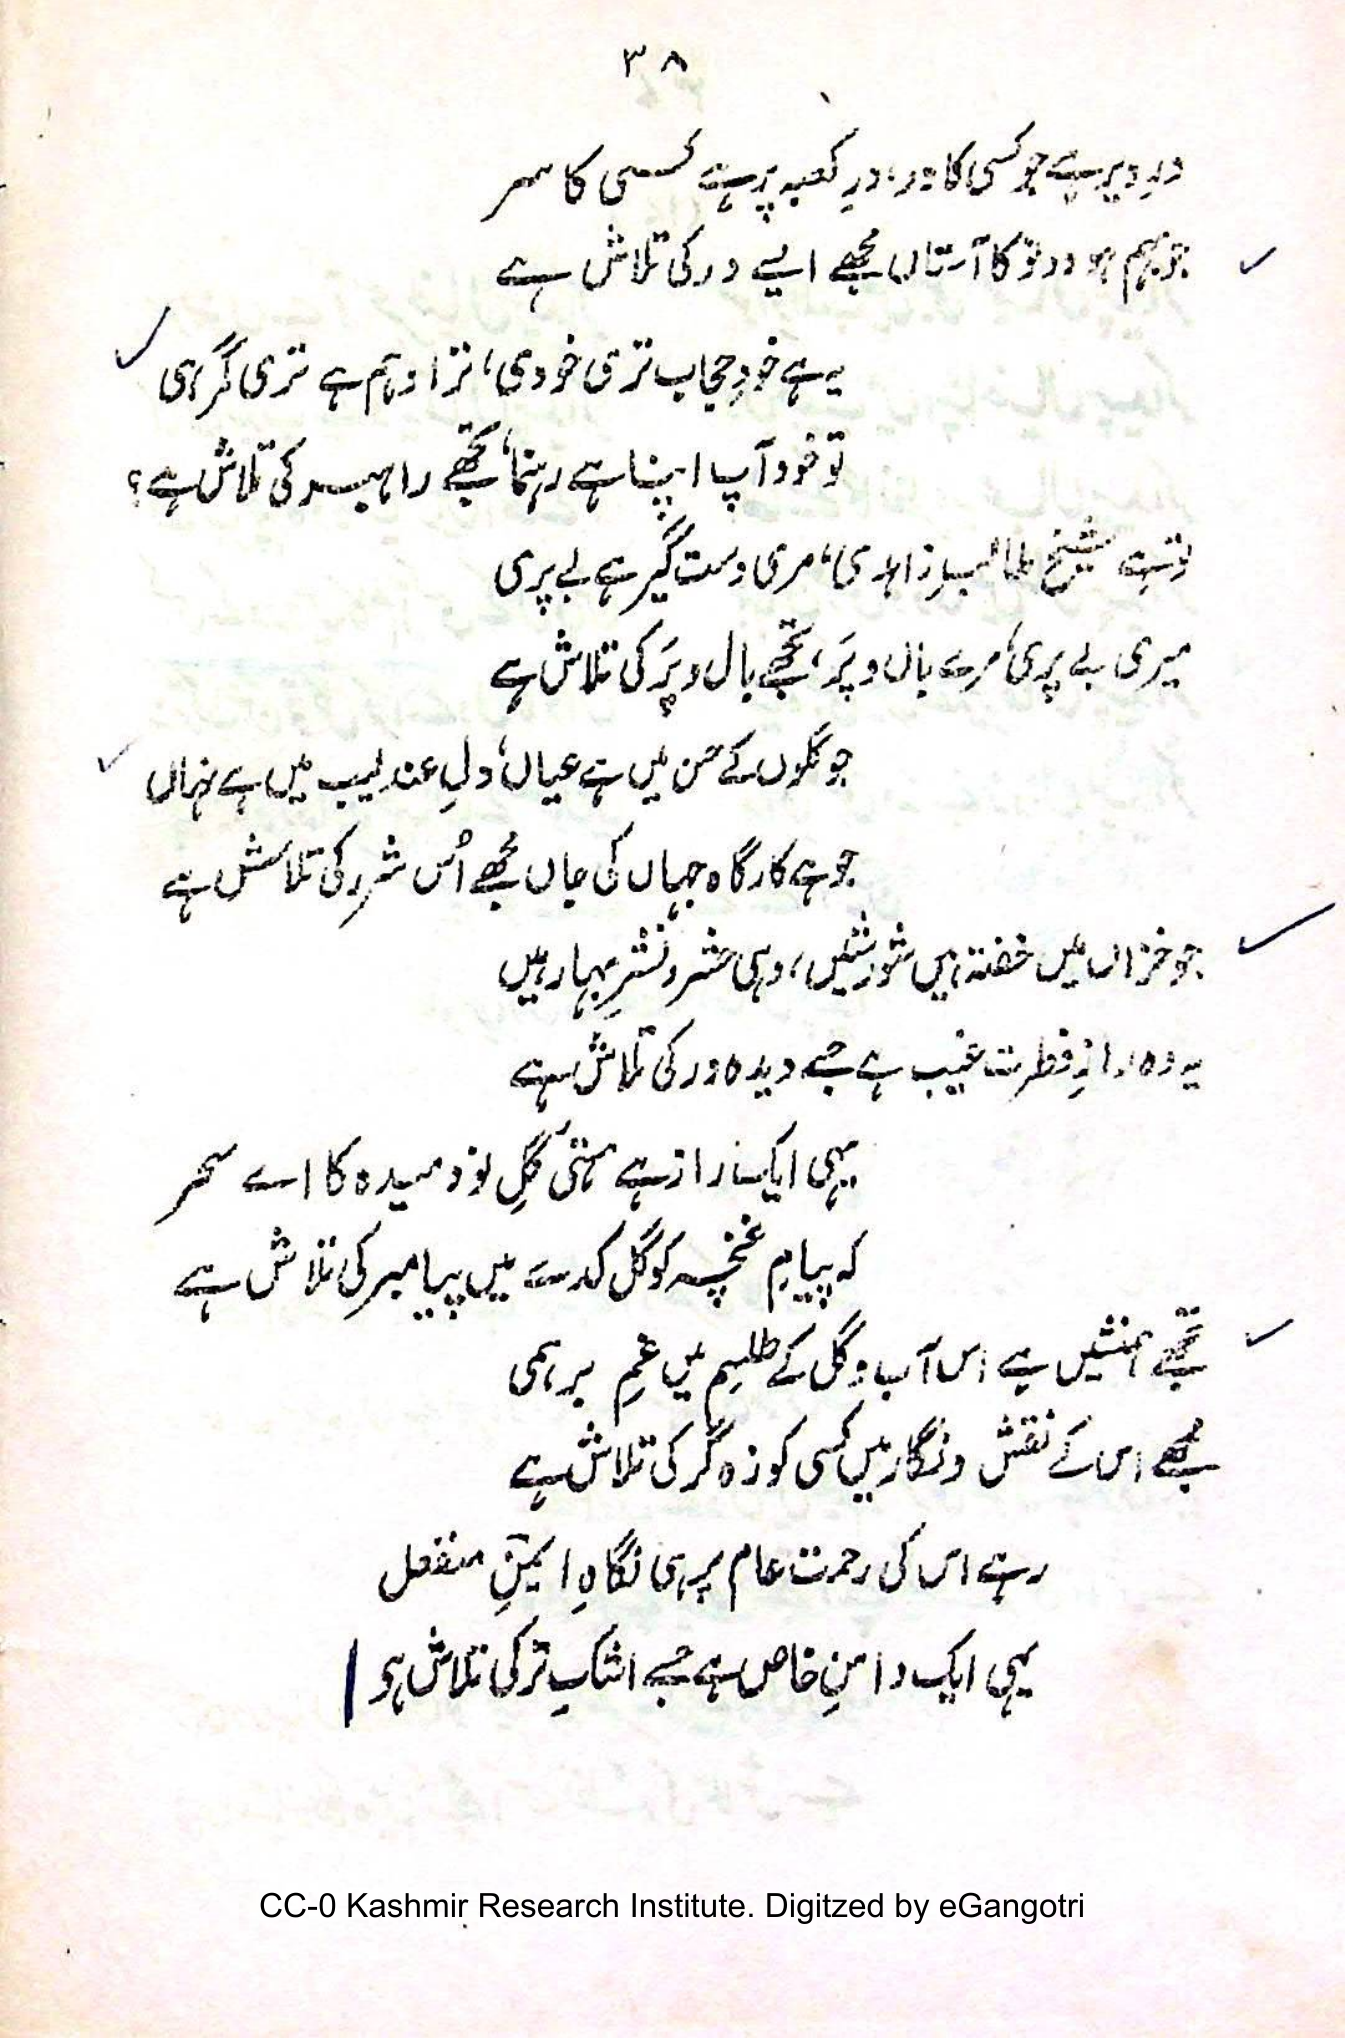 ۳۸
درِ دیر ہے جو کسی کا در، درِ کعبہ پر ہے کسی کا سر
جو بہم ہو دونو کا آستاں مجھے ایسے در کی تلاش ہے
یہ ہے خود حجاب تری خودی، ترا وہم ہے تری گمرہی
تو خود آپ اپنا ہے رہنما، تجھے راہبر کی تلاش ہے؟
تو ہے شیخ طالبِ زاہدی، مری دست گیر ہے بے پری
میری بے پری، مرے بال و پَر، تجھے بال و پَر کی تلاش ہے
جو گلوں کے حسن میں ہے عیاں، دلِ عندلیب میں ہے نہاں
جو ہے کارگاہ جہاں کی جاں مجھے اُس شرر کی تلاش ہے
جو خزاں میں خفتہ ہیں شورشیں، وہی حشر و نشرِ بہار ہیں
یہ وہ رازِ فطرت غیب ہے جسے دیدہ ور کی تلاش ہے
یہی ایک راز ہے ہستیٔ گلِ نو دمیدہ کا اے سحر
کہ پیامِ غنچہ کو گل کدے میں پیامبر کی تلاش ہے
تجھے ہمنشیں ہے اس آب و گل کے طلسم میں غمِ برہمی
مجھے اس کے نقش و نگار میں کسی کوزہ گر کی تلاش ہے
رہے اس کی رحمت عام پر ہی نگاہِ ایمنِ منفعل
یہی ایک دامنِ خاص ہے جسے اشکِ تر کی تلاش ہو
CC-0 Kashmir Research Institute. Digitzed by eGangotri